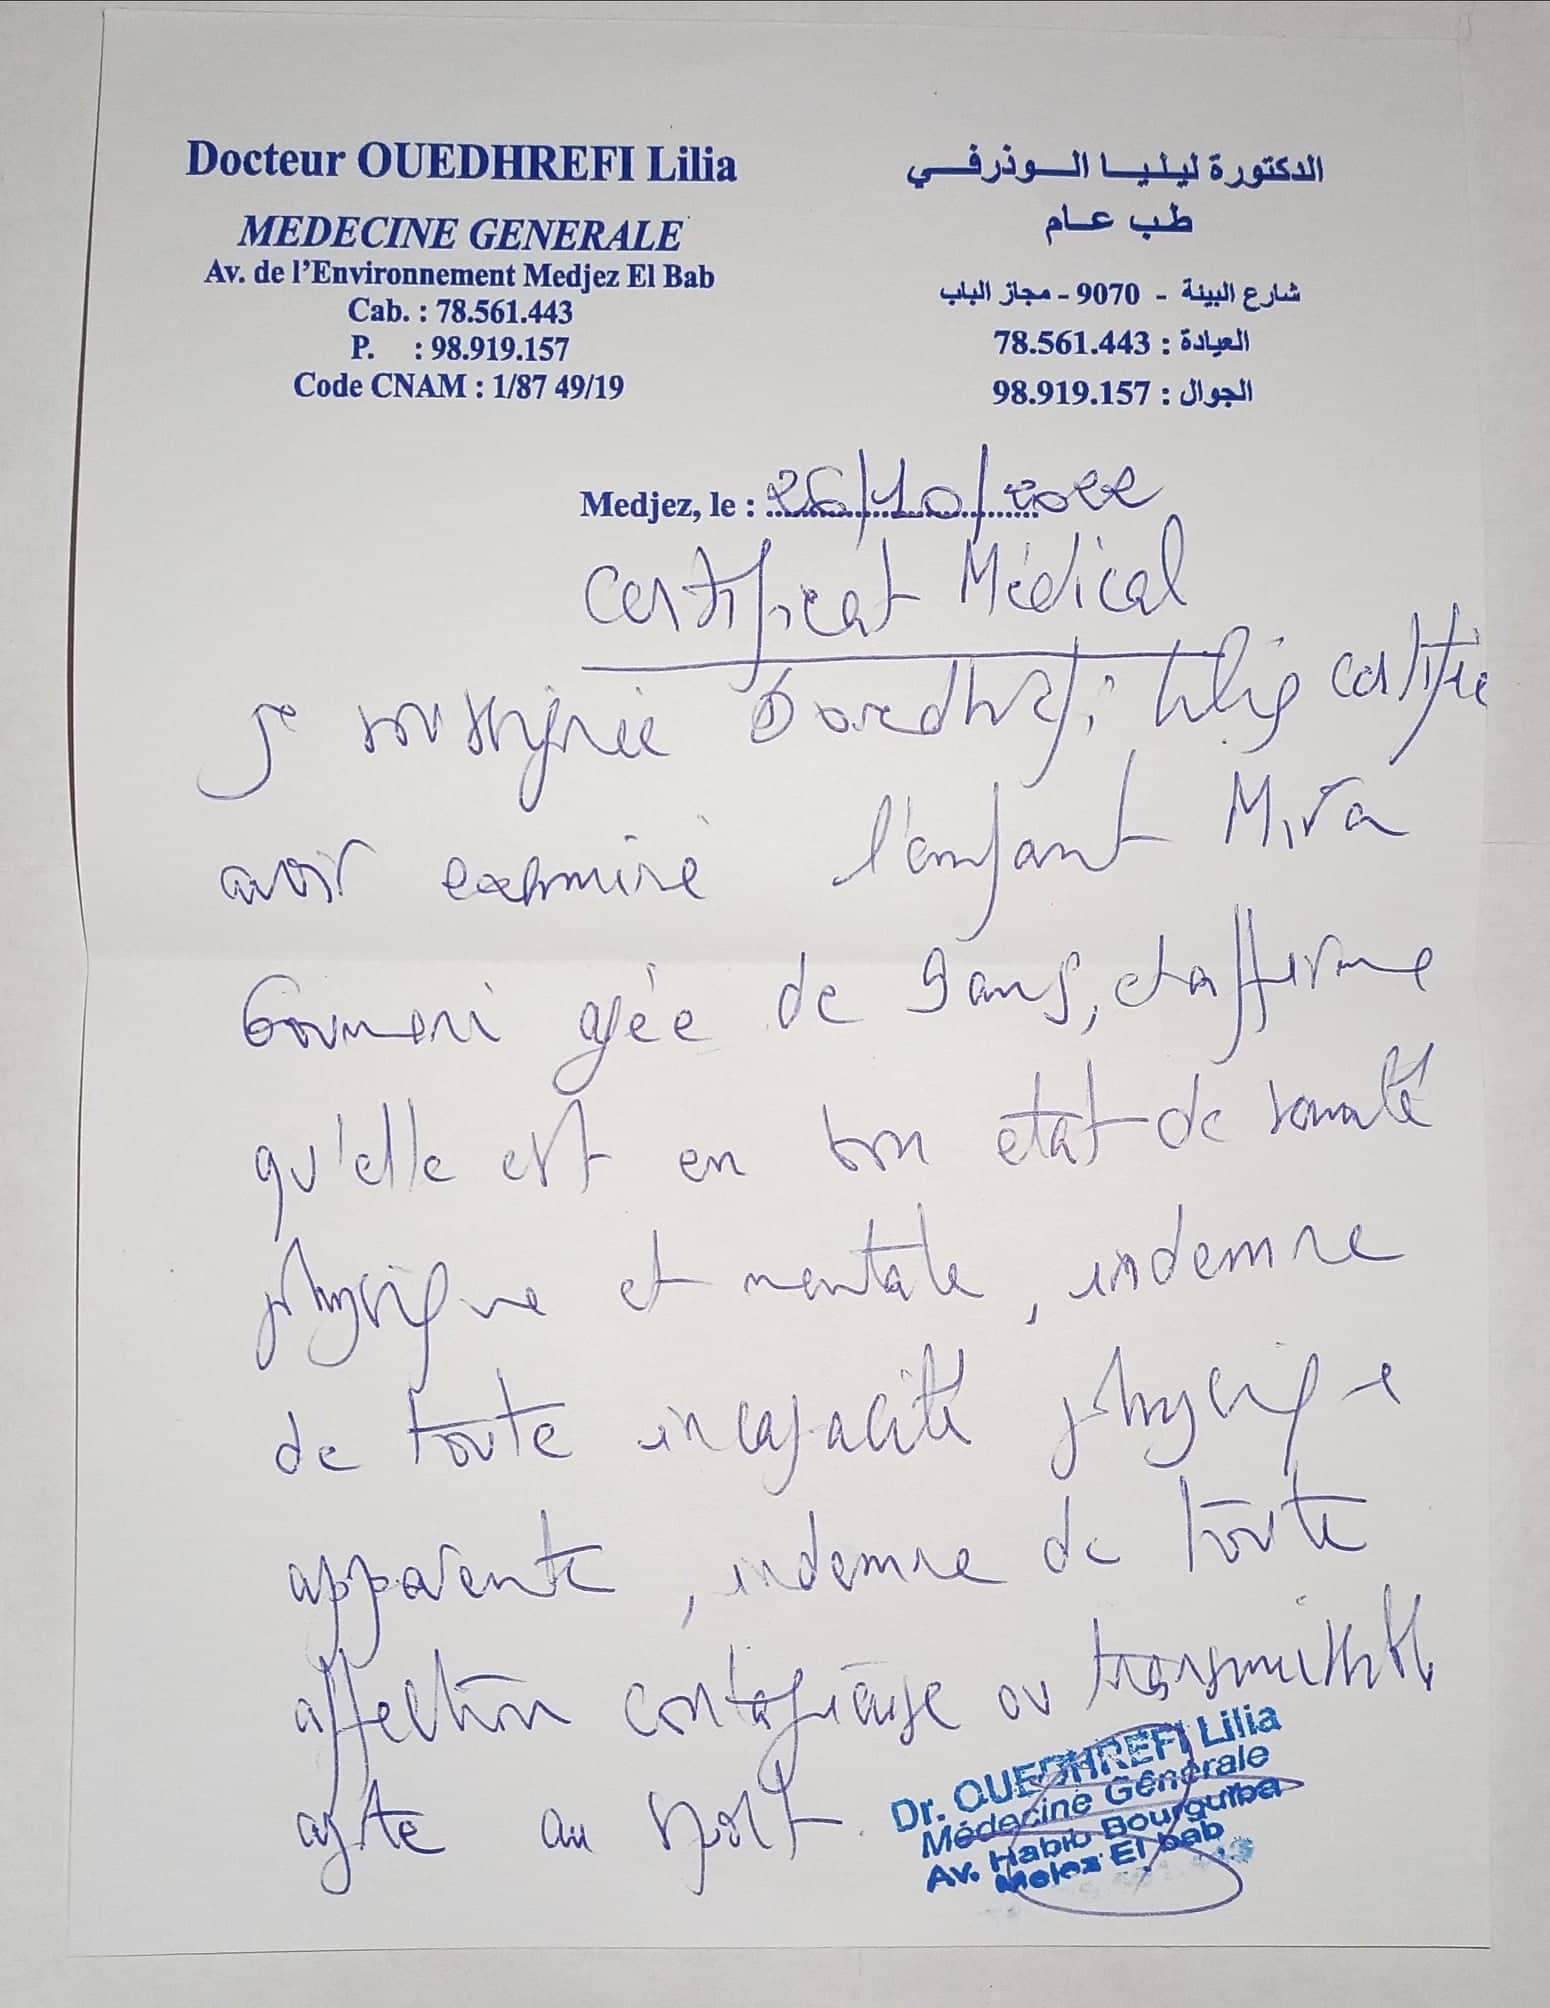 Docteur OUEDHREFI Lilia
MEDECINE GENERALE
Av. de l'Environnement Medjez El Bab
Cab. : 78.561.443
P. : 98.919.157
Code CNAM : 1/87 49/19
الدكتورة ليليا الوذرفي
طب عام
شارع البيئة - 9070 - مجاز الباب
العيادة : 78.561.443
الجوال : 98.919.157
Medjez, le : 26/10/2022
Certificat Médical
Je soussignée Ouedhrefi Lilia certifie
avoir examiné l'enfant Mira
agée de 9 ans, et affirme
qu'elle est en bon etat de santé
physique et mentale, indemne
de toute incapacité physique
apparente, indemne de toute
affection contagieuse ou transmissible
apte au sport.
Dr. OUEDHREFI Lilia
Médecine Générale
Av. Habib Bourguiba
Mejez El bab